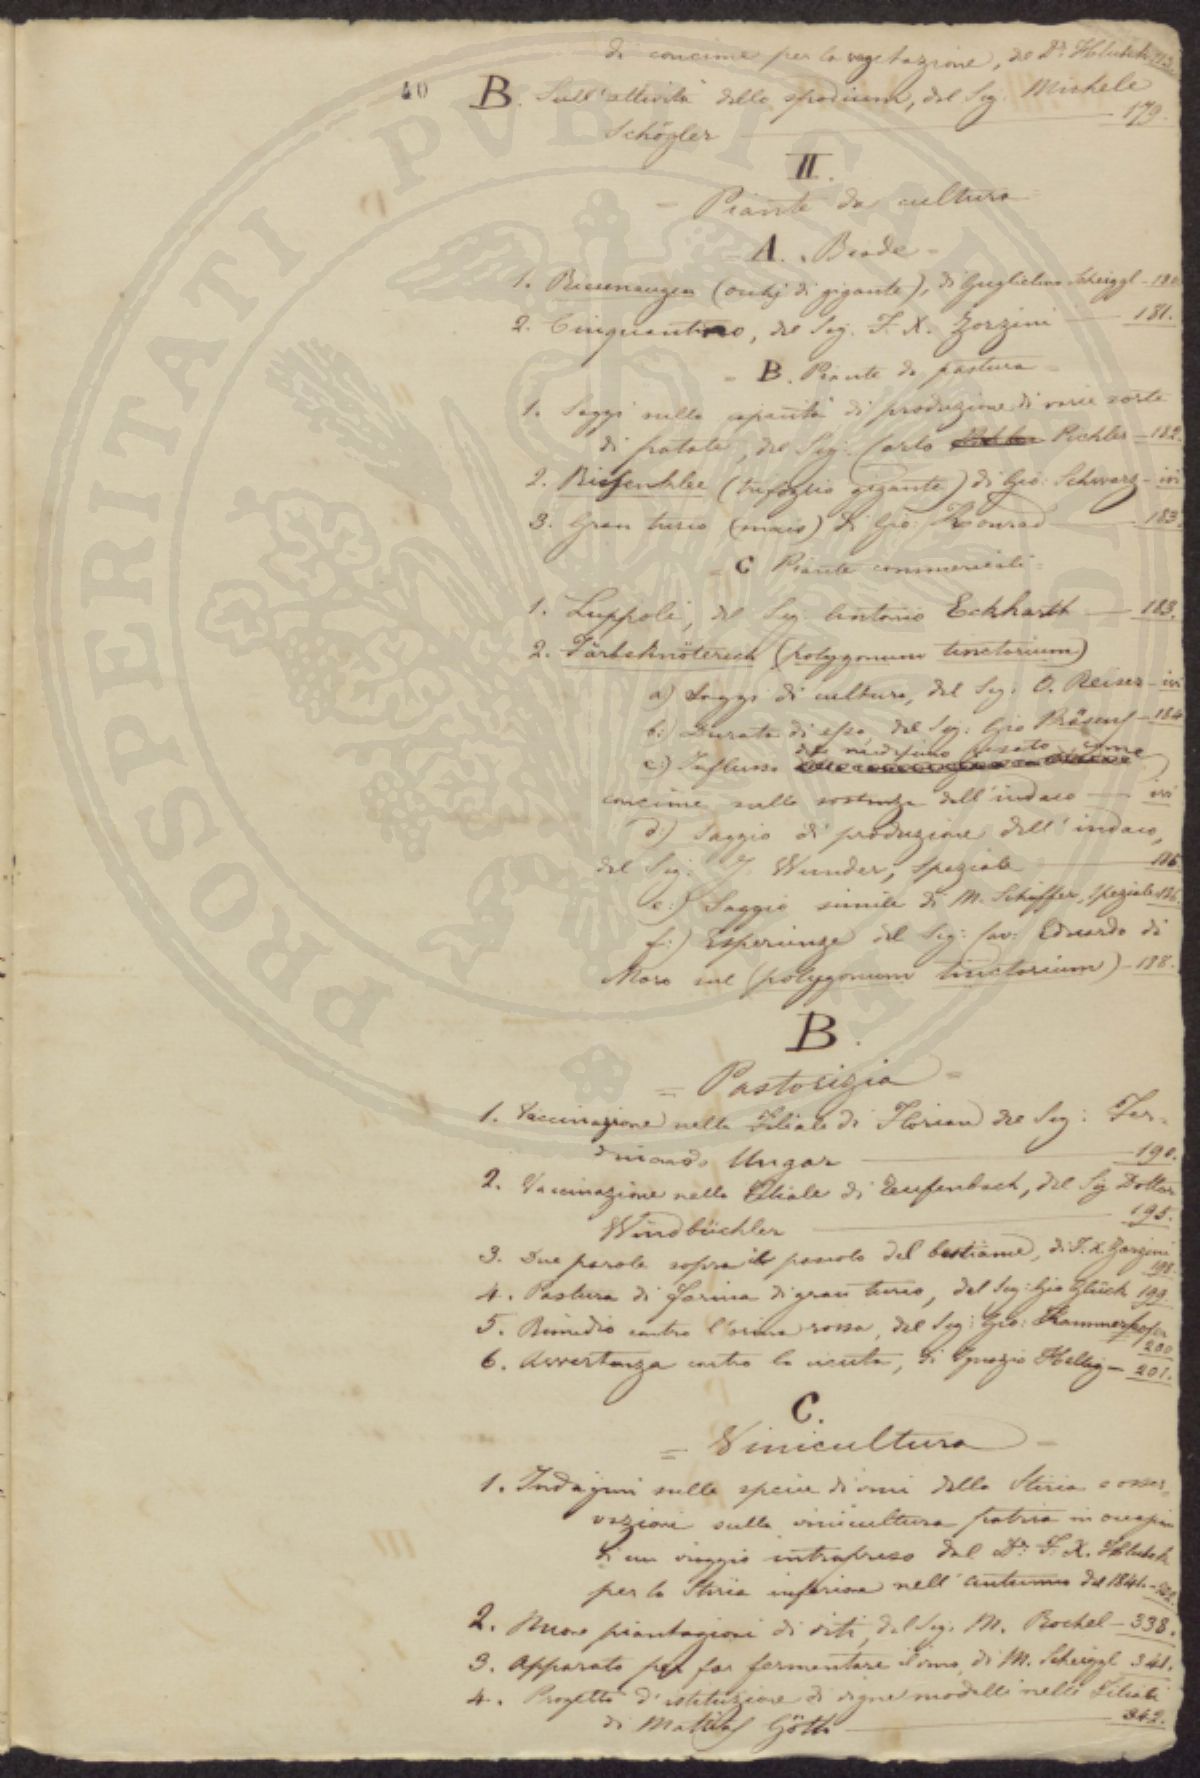 di concime per la vegetazione, del Dr. Hlubek
40
B. Sull'attività dello spodium, del Sig. Michele
Schögler — 179.
II.
= Piante da cultura =
A. Biade =
1. Riesenaugen (occhj di gigante), di Guglielmo Scheiggl — 180
2. Cinquantino, del Sig. F. X. Zorzini — 181.
= B. Piante da pastura =
1. Saggi sulla capacità di produzione di varie sorte
di patate, del Sig. Carlo Pichler — 182.
2. Riesenklee (trifoglio gigante) di Gio: Schwarz — ivi
3. Gran turco (mais) di Gio: Konrad — 183.
= C Piante commerciali =
1. Luppoli, del Sig. Antonio Eckhardt — 183.
2. Färbeknöterich (polygonum tinctorium)
a) Saggi di cultura, del Sig: O. Reiser — ivi
b:) Durata di essa, del Sig: Gio — 184
c:) Influsso del pesato come
concime sulla sostanza dell'indaco — ivi
d:) Saggio di produzione dell'indaco,
del Sig: J. Wunder, speziale — 186
e:) Saggio simile di M. Schäffer, speziale 186.
f:) Esperienze del Sig: Cav: Eduardo di
Moro sul (polygonum tinctorium) — 188.
B.
= Pastorizia =
1. Vaccinazione nella Filiale di Florian del Sig: Fer-
dinando Ungar — 190.
2. Vaccinazione nella Filiale di Teufenbach, del Sig Dottor
Windbüchler — 195.
3. Due parole sopra il pascolo del bestiame, di F. X. Zorzini
198.
4. Pastura di farina di gran turco, del Sig: Gio Glück 199.
5. Rimedio contro l'orina rossa, del Sig: Gio: Kammerhofer
200
6. Avvertenza contro la cicuta, di Ignazio Helbig — 201.
C.
= Vinicultura =
1. Indagini sulle specie di vini della Stiria e osser-
vazioni sulla vinicultura patria in occasion
di un viaggio intrapreso dal Dr. F. X. Hlubek
per la Stiria inferiore nell'autunno del 1841 — 202.
2. Nuove piantagioni di viti, del Sig. M. Rochel — 338.
3. Apparato per far fermentare il vino, di M. Scheiggl 341.
4. Progetto d'istituzione di vigne modelli nelle Filiali
di Mattias Göth — 342.
PROSPERITATI PVBLICAE